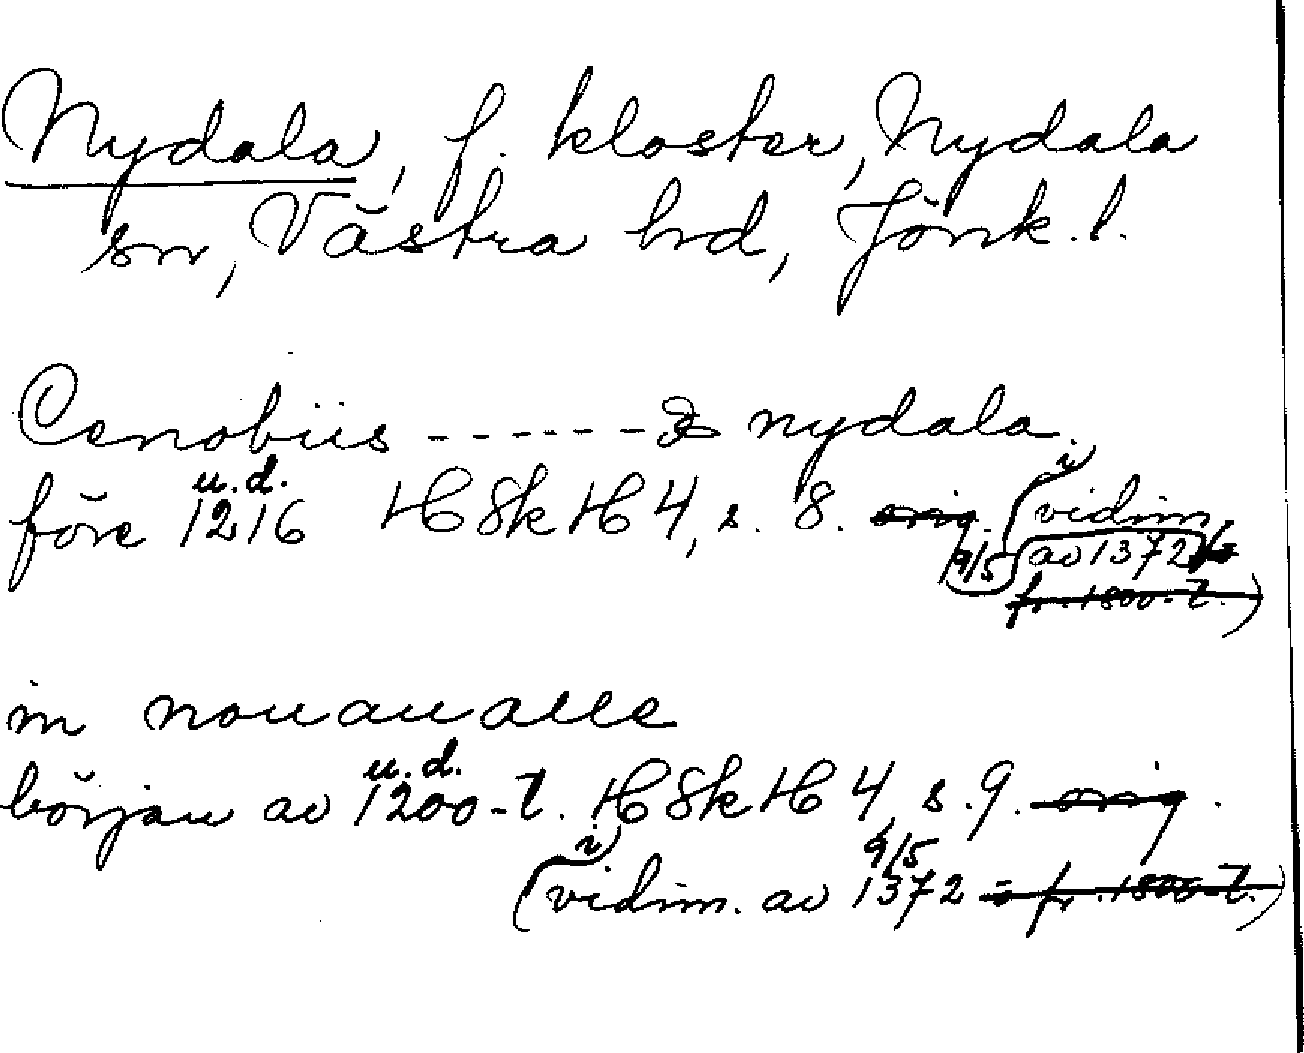 Nydala, f. kloster, Nydala
sn, Västra hd, Jönk. l.
Cenobiis ------ & nydala.
u.d.
före 1216 HSkH 4, s. 8. orig. (i vidim.
9/5 av 1372
fr. 1800-t.)
in nouaualle
u.d.
början av 1200-t. HSkH 4, s. 9. orig.
i 9/5
(vidim. av 1372 i fr. 1800-t.)